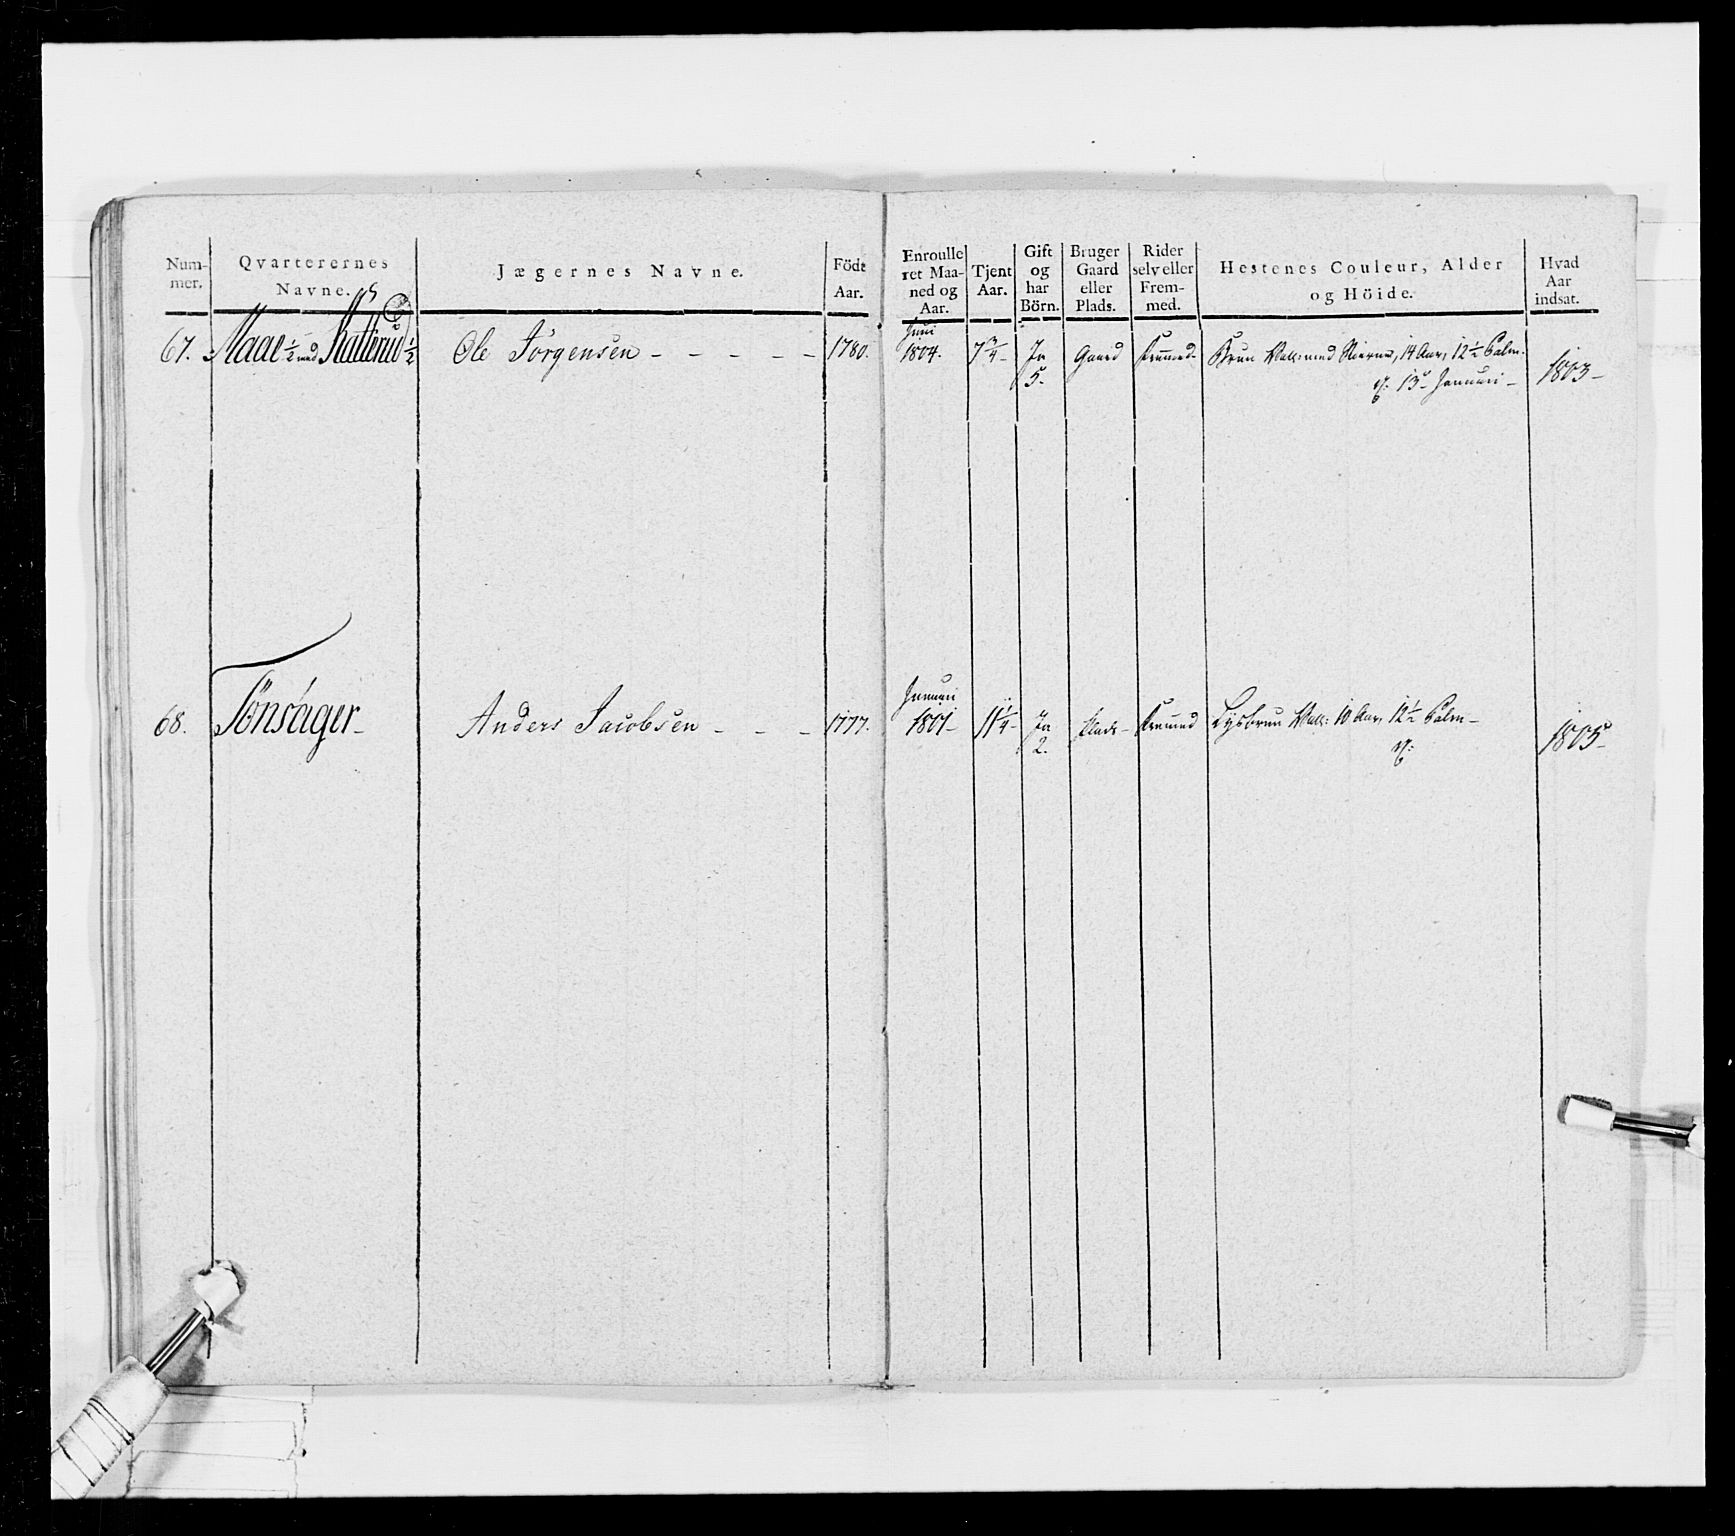 Num-
mer.
Qvarterernes
Navne.
Jægernes Navne.
Födt
Aar.
Enroulle
ret Maa-
ned og
Aar.
Tjent
Aar.
Gift
og
har
Börn.
Bruger
Gaard
eller
Plads.
Rider
selv eller
Frem-
med.
Hestenes Couleur, Alder
og Höide.
Hvad
Aar
indsat.
67. Maal ½ med Katterud ½ Ole Jörgensen - - - - - 1780. Juni 1804. 7¾ - Ja 5. Gaard Fremmed - Bruun Vall: med Stierne, 14 Aar, 12½ Palm.
13 - Januari - 1803 -
68. Tönsager - Anders Jacobsen - - - 1777. Januari 1801 - 11¼ - Ja 2. Plads - Fremmed Lysbruun Vall: 10 Aar, 12½ Palm -
1805 -